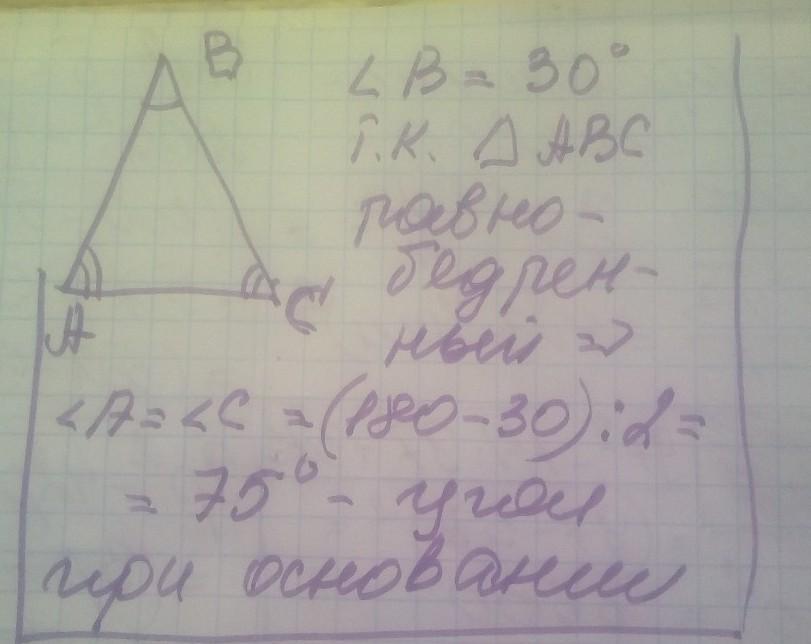 B
∠B = 30°
т.к. △ABC
равно-
бедрен-
ный =>
A
C
∠A = ∠C = (180-30):2=
= 75° - угол
при основании